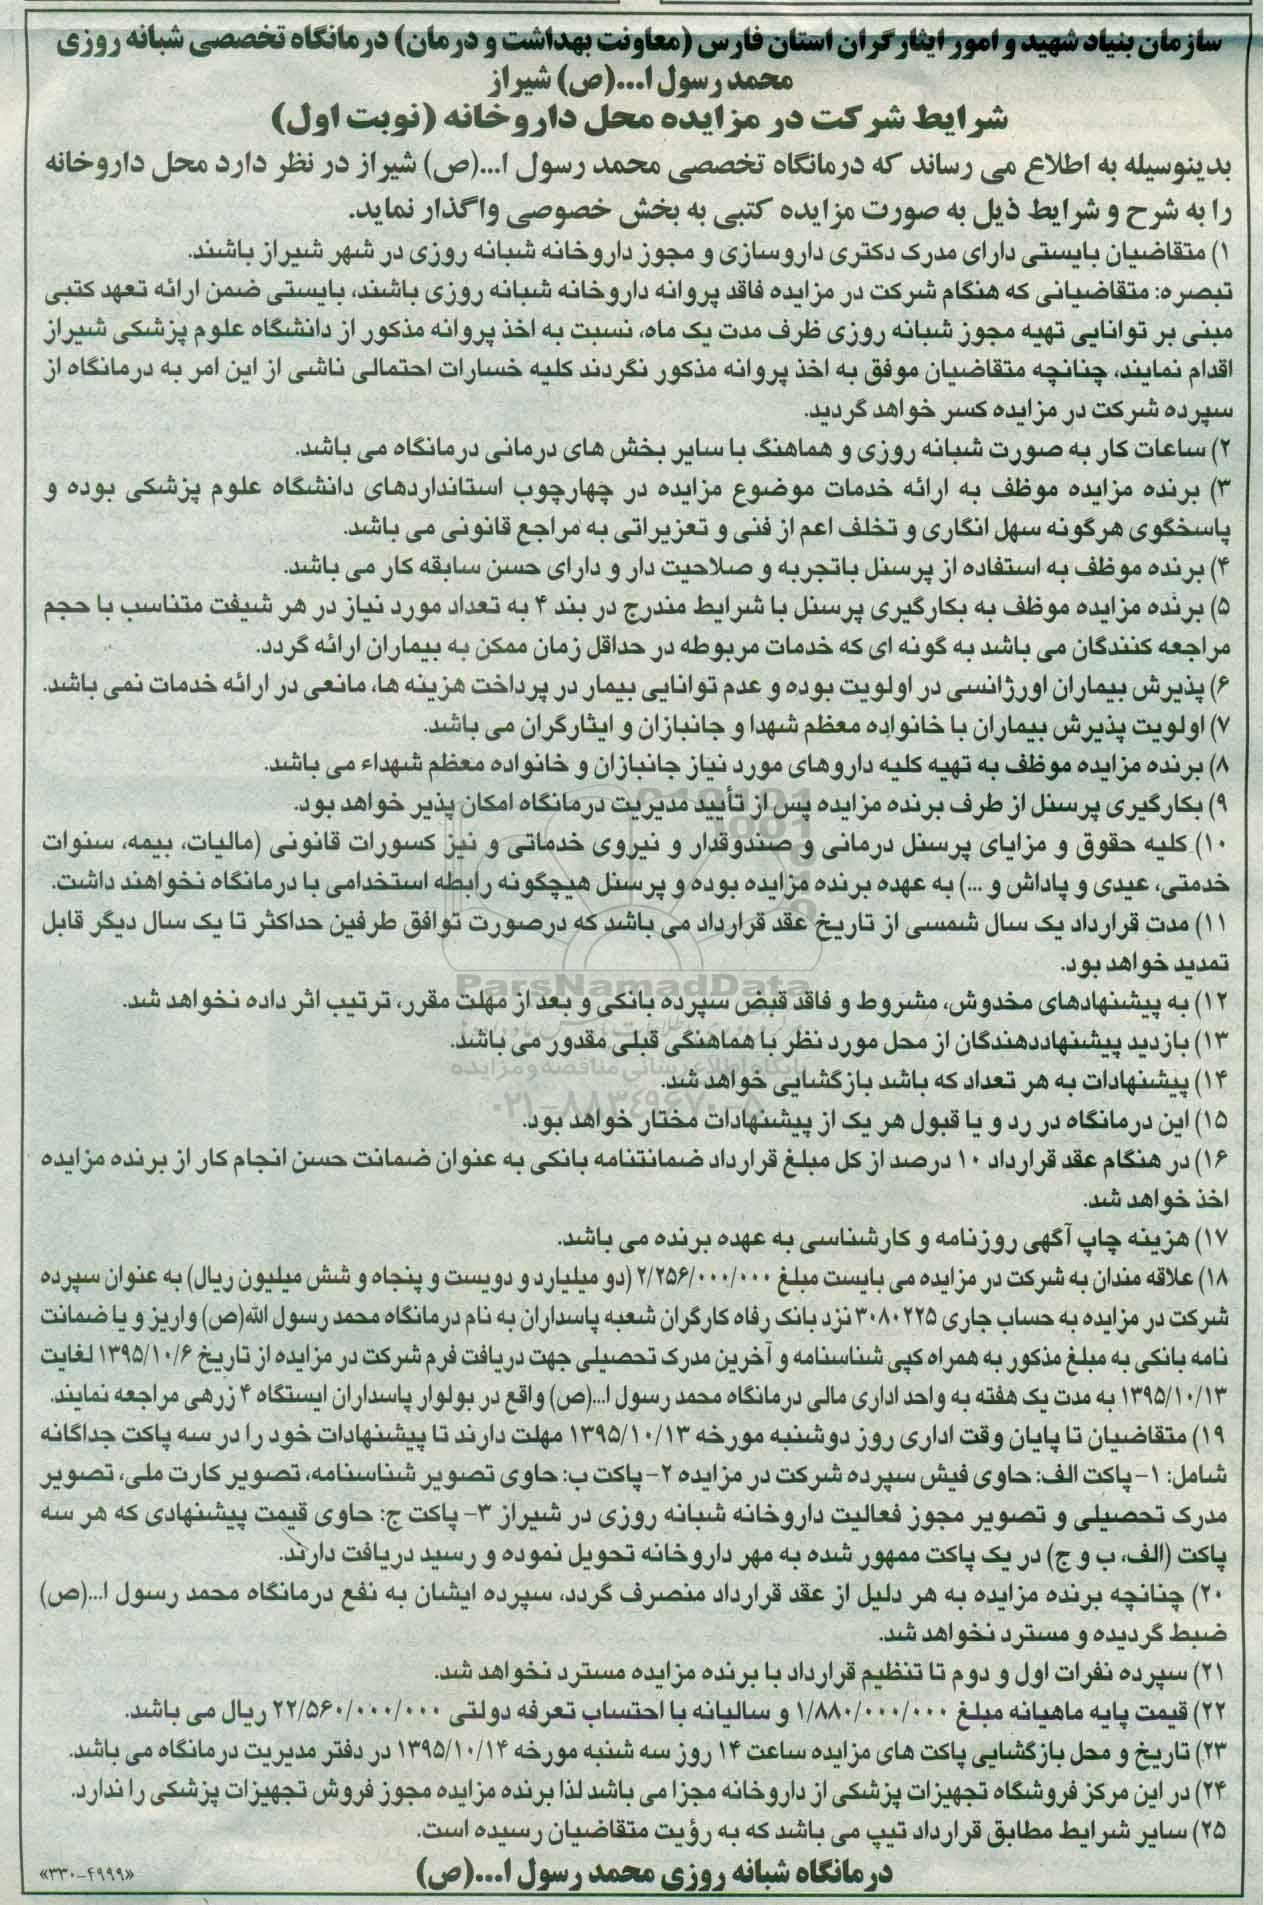 سازمان بنیاد شهید و امور ایثارگران استان فارس (معاونت بهداشت و درمان) درمانگاه تخصصی شبانه روزی
محمد رسول ا...(ص) شیراز
شرایط شرکت در مزایده محل داروخانه (نوبت اول)
بدینوسیله به اطلاع می رساند که درمانگاه تخصصی محمد رسول ا...(ص) شیراز در نظر دارد محل داروخانه
را به شرح و شرایط ذیل به صورت مزایده کتبی به بخش خصوصی واگذار نماید.
۱) متقاضیان بایستی دارای مدرک دکتری داروسازی و مجوز داروخانه شبانه روزی در شهر شیراز باشند.
تبصره: متقاضیانی که هنگام شرکت در مزایده فاقد پروانه داروخانه شبانه روزی باشند، بایستی ضمن ارائه تعهد کتبی
مبنی بر توانایی تهیه مجوز شبانه روزی ظرف مدت یک ماه، نسبت به اخذ پروانه مذکور از دانشگاه علوم پزشکی شیراز
اقدام نمایند، چنانچه متقاضیان موفق به اخذ پروانه مذکور نگردند کلیه خسارات احتمالی ناشی از این امر به درمانگاه از
سپرده شرکت در مزایده کسر خواهد گردید.
۲) ساعات کار به صورت شبانه روزی و هماهنگ با سایر بخش های درمانی درمانگاه می باشد.
۳) برنده مزایده موظف به ارائه خدمات موضوع مزایده در چهارچوب استانداردهای دانشگاه علوم پزشکی بوده و
پاسخگوی هرگونه سهل انگاری و تخلف اعم از فنی و تعزیراتی به مراجع قانونی می باشد.
۴) برنده موظف به استفاده از پرسنل باتجربه و صلاحیت دار و دارای حسن سابقه کار می باشد.
۵) برنده مزایده موظف به بکارگیری پرسنل با شرایط مندرج در بند ۴ به تعداد مورد نیاز در هر شیفت متناسب با حجم
مراجعه کنندگان می باشد به گونه ای که خدمات مربوطه در حداقل زمان ممکن به بیماران ارائه گردد.
۶) پذیرش بیماران اورژانسی در اولویت بوده و عدم توانایی بیمار در پرداخت هزینه ها، مانعی در ارائه خدمات نمی باشد.
۷) اولویت پذیرش بیماران با خانواده معظم شهدا و جانبازان و ایثارگران می باشد.
۸) برنده مزایده موظف به تهیه کلیه داروهای مورد نیاز جانبازان و خانواده معظم شهداء می باشد.
۹) بکارگیری پرسنل از طرف برنده مزایده پس از تأیید مدیریت درمانگاه امکان پذیر خواهد بود.
۱۰) کلیه حقوق و مزایای پرسنل درمانی و صندوقدار و نیروی خدماتی و نیز کسورات قانونی (مالیات، بیمه، سنوات
خدمتی، عیدی و پاداش و ...) به عهده برنده مزایده بوده و پرسنل هیچگونه رابطه استخدامی با درمانگاه نخواهند داشت.
۱۱) مدت قرارداد یک سال شمسی از تاریخ عقد قرارداد می باشد که درصورت توافق طرفین حداکثر تا یک سال دیگر قابل
تمدید خواهد بود.
ParsNamadData
۱۲) به پیشنهادهای مخدوش، مشروط و فاقد قبض سپرده بانکی و بعد از مهلت مقرر، ترتیب اثر داده نخواهد شد.
۱۳) بازدید پیشنهاددهندگان از محل مورد نظر با هماهنگی قبلی مقدور می باشد.
پایگاه اطلاع رسانی مناقصه و مزایده
۱۴) پیشنهادات به هر تعداد که باشد بازگشایی خواهد شد.
۰۲۱-۸۸۳۴۹۶۷۰-۵
۱۵) این درمانگاه در رد و یا قبول هر یک از پیشنهادات مختار خواهد بود.
۱۶) در هنگام عقد قرارداد ۱۰ درصد از کل مبلغ قرارداد ضمانتنامه بانکی به عنوان ضمانت حسن انجام کار از برنده مزایده
اخذ خواهد شد.
۱۷) هزینه چاپ آگهی روزنامه و کارشناسی به عهده برنده می باشد.
۱۸) علاقه مندان به شرکت در مزایده می بایست مبلغ ۲/۲۵۶/۰۰۰/۰۰۰ (دو میلیارد و دویست و پنجاه و شش میلیون ریال) به عنوان سپرده
شرکت در مزایده به حساب جاری ۳۰۸۰۲۲۵ نزد بانک رفاه کارگران شعبه پاسداران به نام درمانگاه محمد رسول الله(ص) واریز و یا ضمانت
نامه بانکی به مبلغ مذکور به همراه کپی شناسنامه و آخرین مدرک تحصیلی جهت دریافت فرم شرکت در مزایده از تاریخ ۱۳۹۵/۱۰/۶ لغایت
۱۳۹۵/۱۰/۱۳ به مدت یک هفته به واحد اداری مالی درمانگاه محمد رسول ا...(ص) واقع در بولوار پاسداران ایستگاه ۴ زرهی مراجعه نمایند.
۱۹) متقاضیان تا پایان وقت اداری روز دوشنبه مورخه ۱۳۹۵/۱۰/۱۳ مهلت دارند تا پیشنهادات خود را در سه پاکت جداگانه
شامل: ۱- پاکت الف: حاوی فیش سپرده شرکت در مزایده ۲- پاکت ب: حاوی تصویر شناسنامه، تصویر کارت ملی، تصویر
مدرک تحصیلی و تصویر مجوز فعالیت داروخانه شبانه روزی در شیراز ۳- پاکت ج: حاوی قیمت پیشنهادی که هر سه
پاکت (الف، ب و ج) در یک پاکت ممهور شده به مهر داروخانه تحویل نموده و رسید دریافت دارند.
۲۰) چنانچه برنده مزایده به هر دلیل از عقد قرارداد منصرف گردد، سپرده ایشان به نفع درمانگاه محمد رسول ا...(ص)
ضبط گردیده و مسترد نخواهد شد.
۲۱) سپرده نفرات اول و دوم تا تنظیم قرارداد با برنده مزایده مسترد نخواهد شد.
۲۲) قیمت پایه ماهیانه مبلغ ۱/۸۸۰/۰۰۰/۰۰۰ و سالیانه با احتساب تعرفه دولتی ۲۲/۵۶۰/۰۰۰/۰۰۰ ریال می باشد.
۲۳) تاریخ و محل بازگشایی پاکت های مزایده ساعت ۱۴ روز سه شنبه مورخه ۱۳۹۵/۱۰/۱۴ در دفتر مدیریت درمانگاه می باشد.
۲۴) در این مرکز فروشگاه تجهیزات پزشکی از داروخانه مجزا می باشد لذا برنده مزایده مجوز فروش تجهیزات پزشکی را ندارد.
۲۵) سایر شرایط مطابق قرارداد تیپ می باشد که به رؤیت متقاضیان رسیده است.
درمانگاه شبانه روزی محمد رسول ا...(ص)
«۳۳۰-۴۹۹۹»